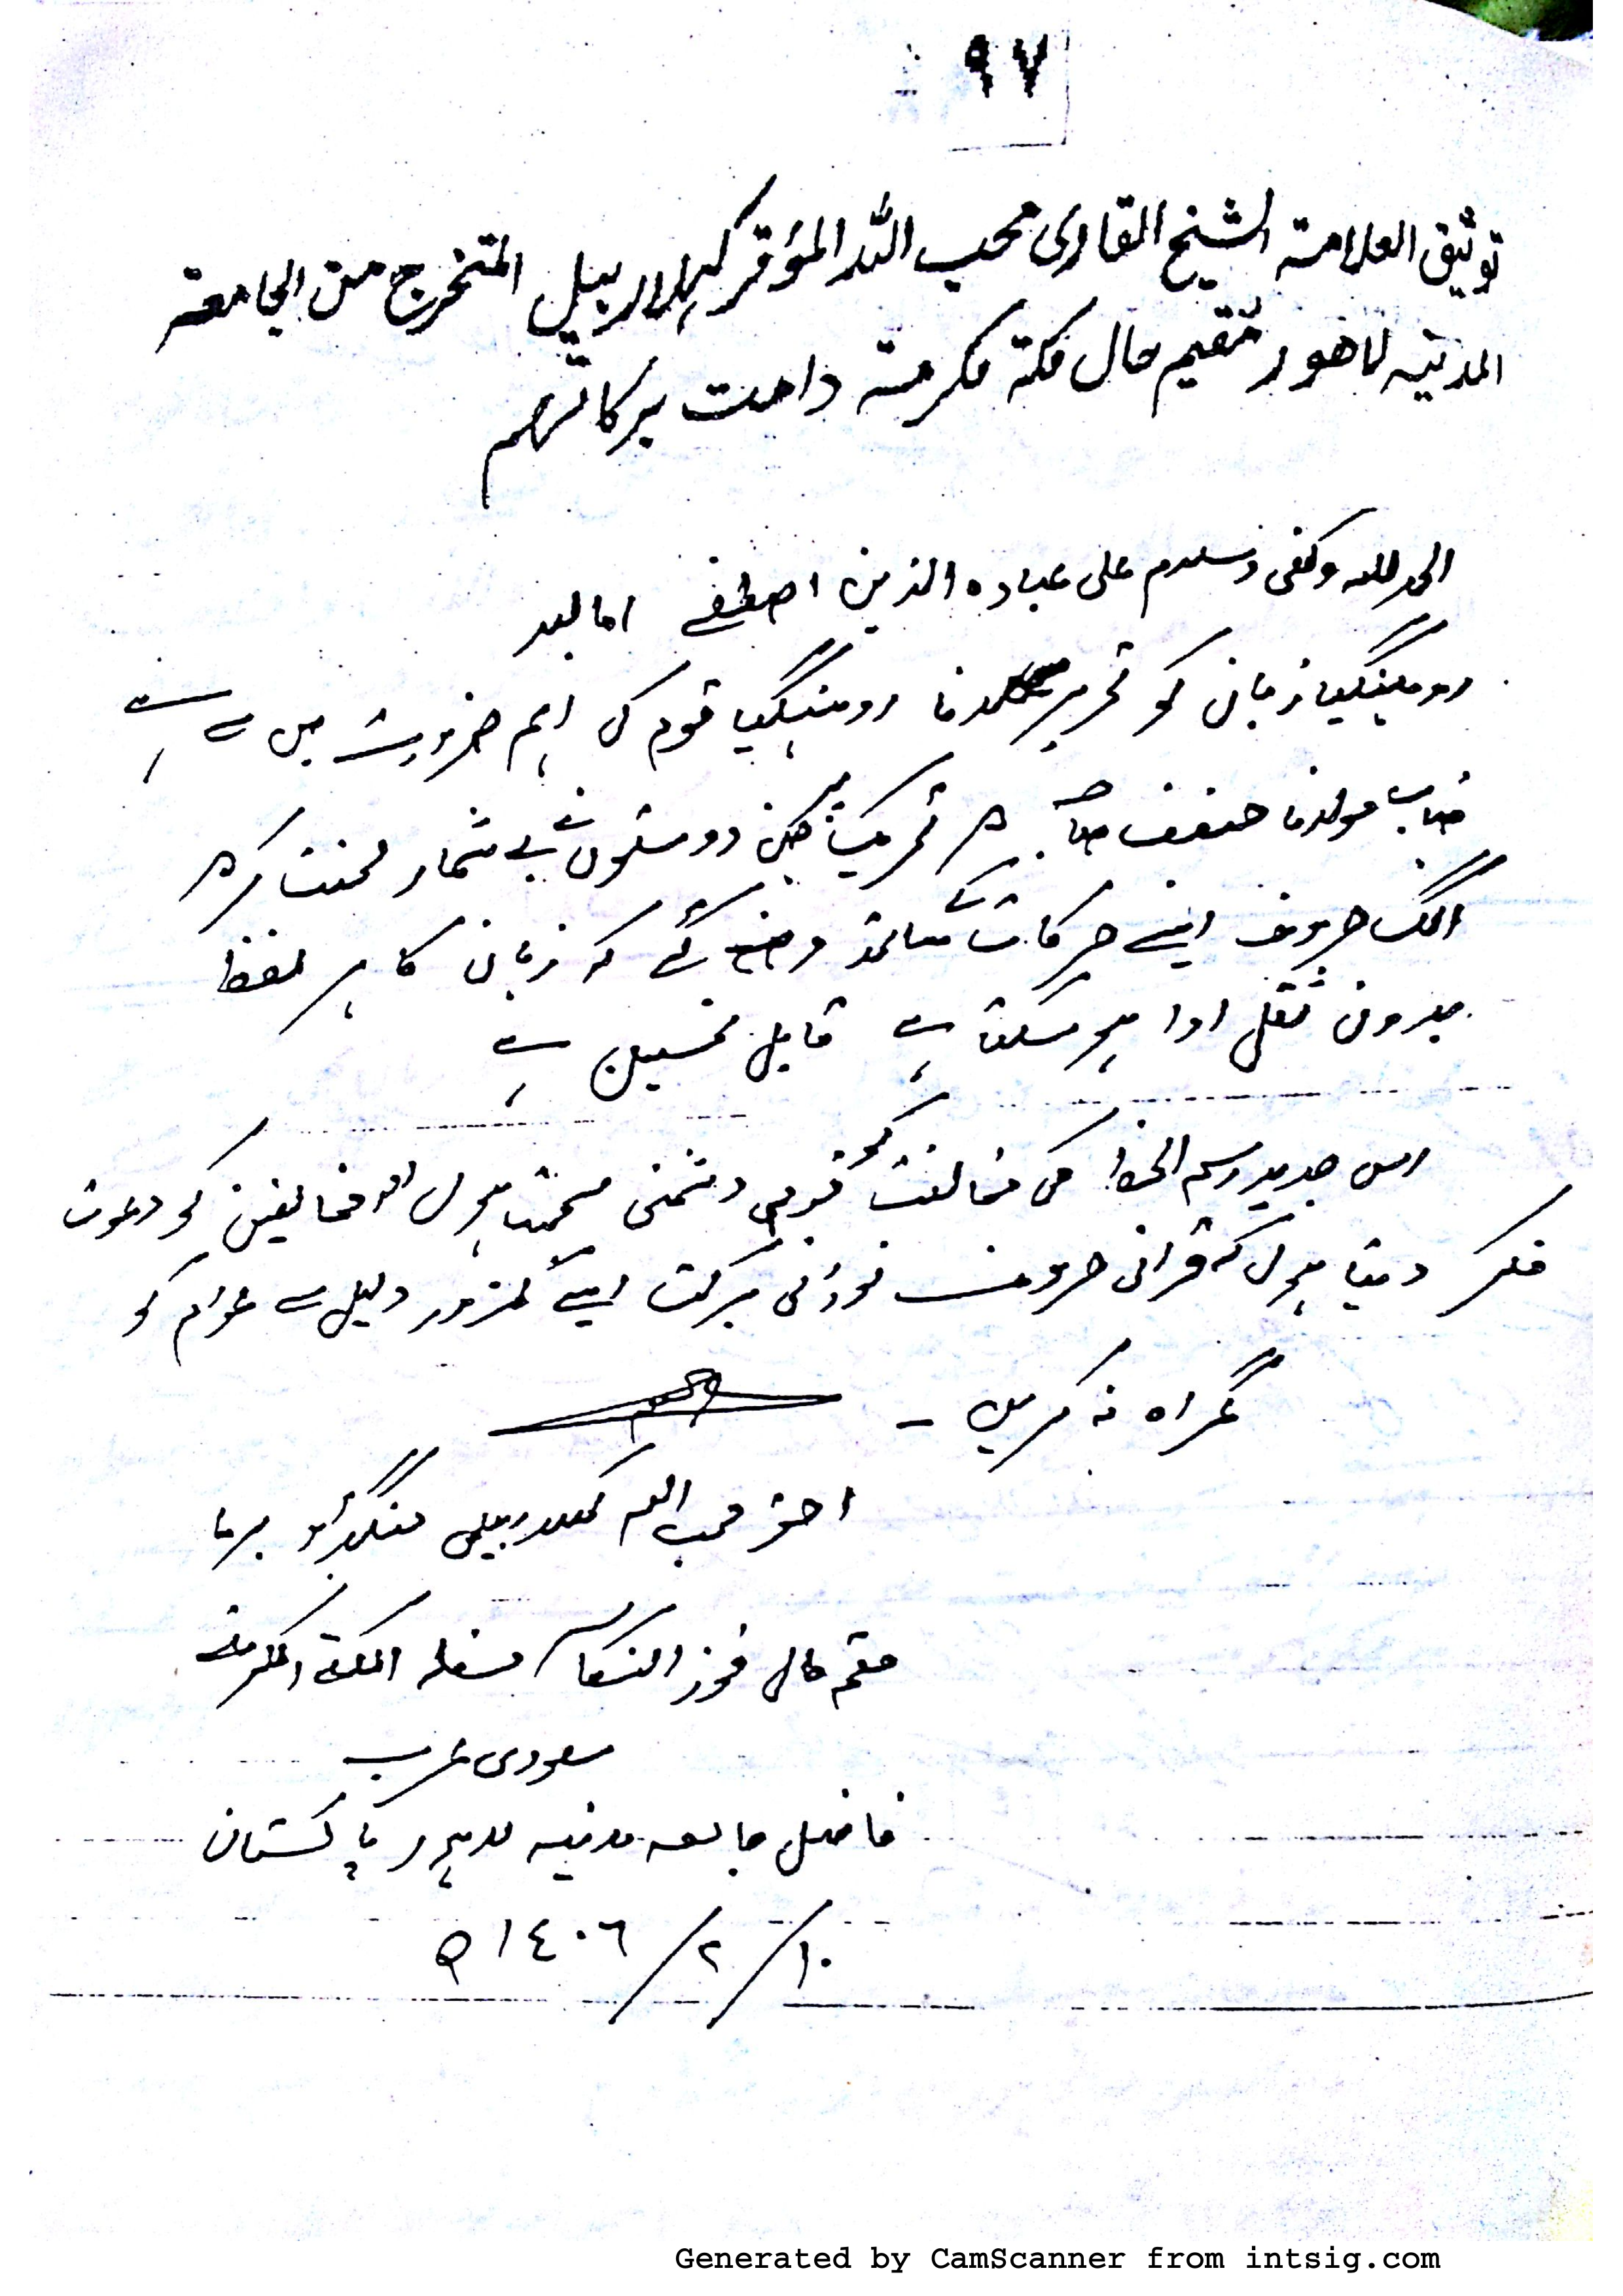 ٩٧
توثيق العلامة الشيخ القاری محب اللہ المؤقر المتخرج من الجامعة
المدنیہ لاهور مقیم حال مکة مکرمة دامت برکاتہم
الحمد للہ وکفی وسلام علی عبادہ الذین اصطفے اما بعد
روہینگیا زبان کو تحریر کرنا روہینگیا قوم کی اہم ضرورت میں سے ہے
جناب مولانا حنیف صاحب تحریک جن دوستوں نے بے شمار محنت کر
الگ حروف اپنے حرکات کے ساتھ وضع کئے کہ زبان کا ہر لفظ
بدون ثقل ادا ہو سکتا ہے قابل تحسین ہے
اس جدید رسم الخط کی مخالفت کو قومی دشمنی سمجھتا ہوں اور مخالفین کو دعوت
فکر دیتا ہوں کہ قرآنی حروف نورانی برکت ایسے کمزور دلیل سے عوام کو
گمراہ نہ کریں ۔
احقر محب اللہ برما
مقیم حال مسفلہ المکة المکرمة
سعودی عرب
فاضل جامعہ مدنیہ لاہور پاکستان
١٠/٢/١٤٠٦ ھ
Generated by CamScanner from intsig.com